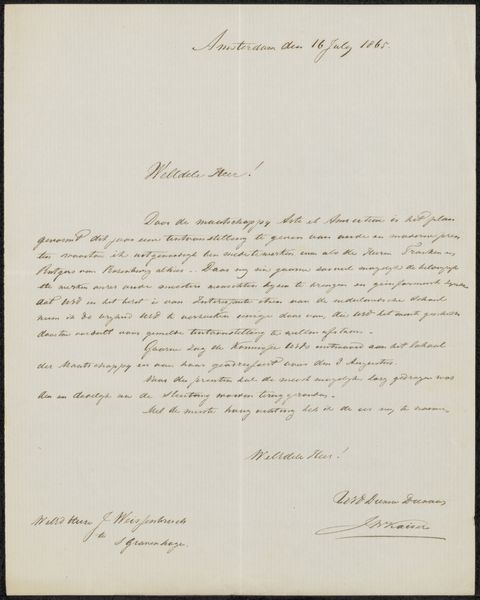 Amsterdam den 16 July 1865.
WelEdele Heer!
Door de maatschappy Arti et Amicitiae is het plan
gevormd dit jaar eene tentoonstelling te geven van oude en moderne pren
ten waarom ik uitgenoodigd ben mede te werken even als de Heeren Franken en
Rutgers van Rozenburg alhier. Daar wy zoo gaarne zooveel mogelyk de belangryk
ste werken onzer oude meesters wenschten byeen te krengen en geinformeerd zynde
dat UEd in het bezit is van etsen van de nederlandsche School
neem ik de vryheid UEd te verzoeken eenige daar van die UEd het meest geschikt
daartoe oordeelt voor gemelde tentoonstelling te willen afstaan.
Gaarne zag de Kommissie UEds antwoord aan het lokaal
der Maatschappy en aan haar geadresseerd voor den 8 Augustus.
Voor de prenten zal de meest mogelyke zorg gedragen wor
den en dadelyk na de sluiting worden teruggezonden.
Met de meeste hoogachting heb ik de eer my te noemen
WelEdele Heer!
UEd Dienaar
JWKaiser
WelEd Heer J. Weissenbruch
te
s Gravenhage.